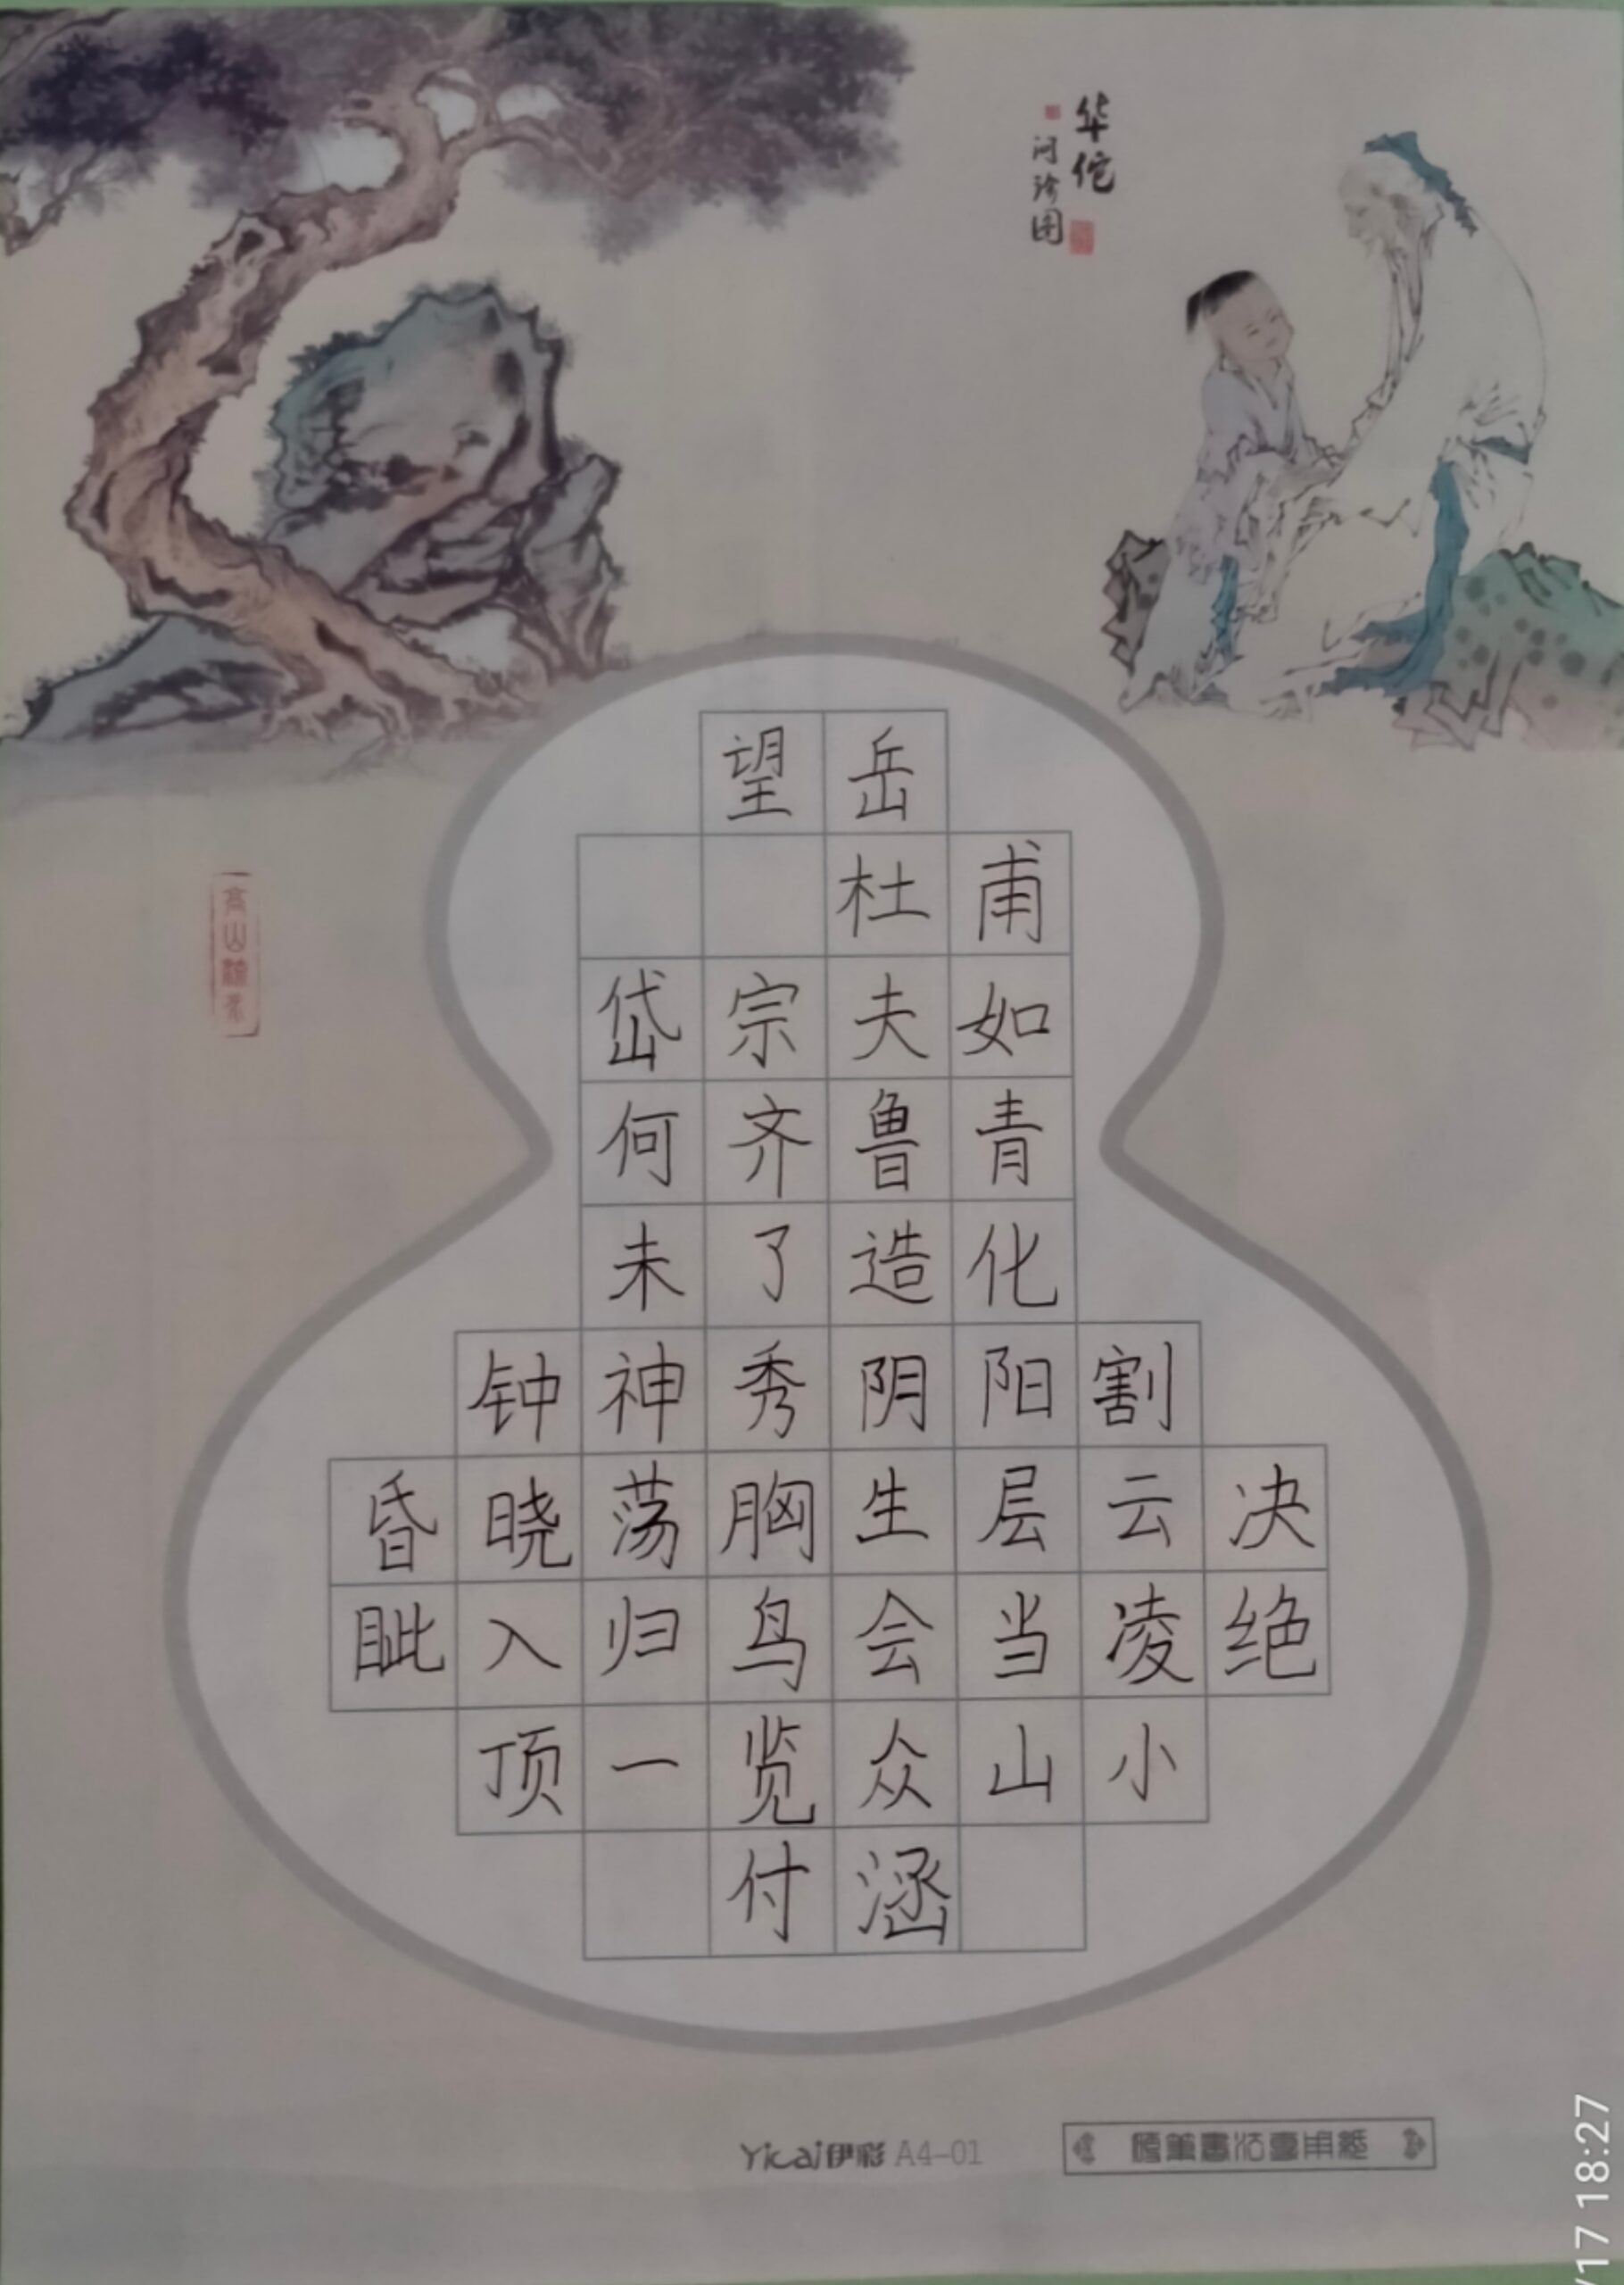 华佗
问诊图
望岳
杜甫
岱宗夫如
何齐鲁青
未了造化
钟神秀阴阳割
昏晓荡胸生层云决
眦入归鸟会当凌绝
顶一览众山小
付涵
Yicai伊彩 A4-01
硬笔书法专用纸
/17 18:27